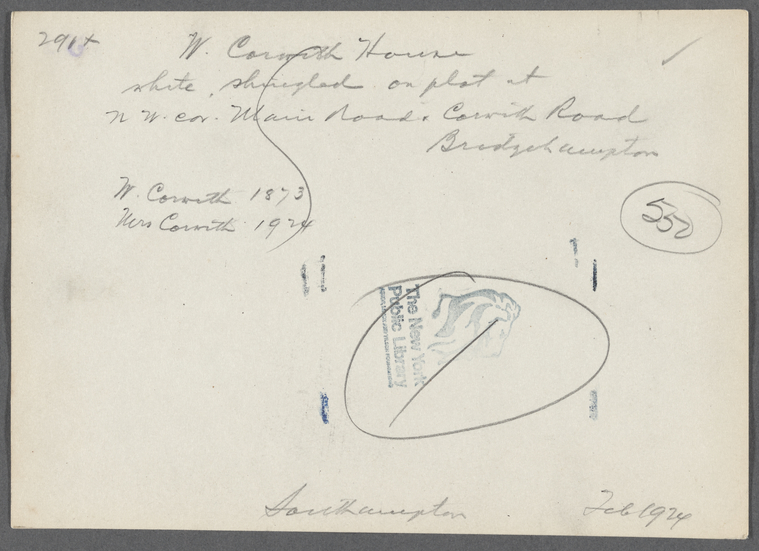 291+
W. Corwith House
white, shingled on plot at
N W. cor. Main Road & Corwith Road
Bridgehampton
W. Corwith 1873
Mrs Corwith 1924
550
The New York
Public Library
Southampton Feb 1924